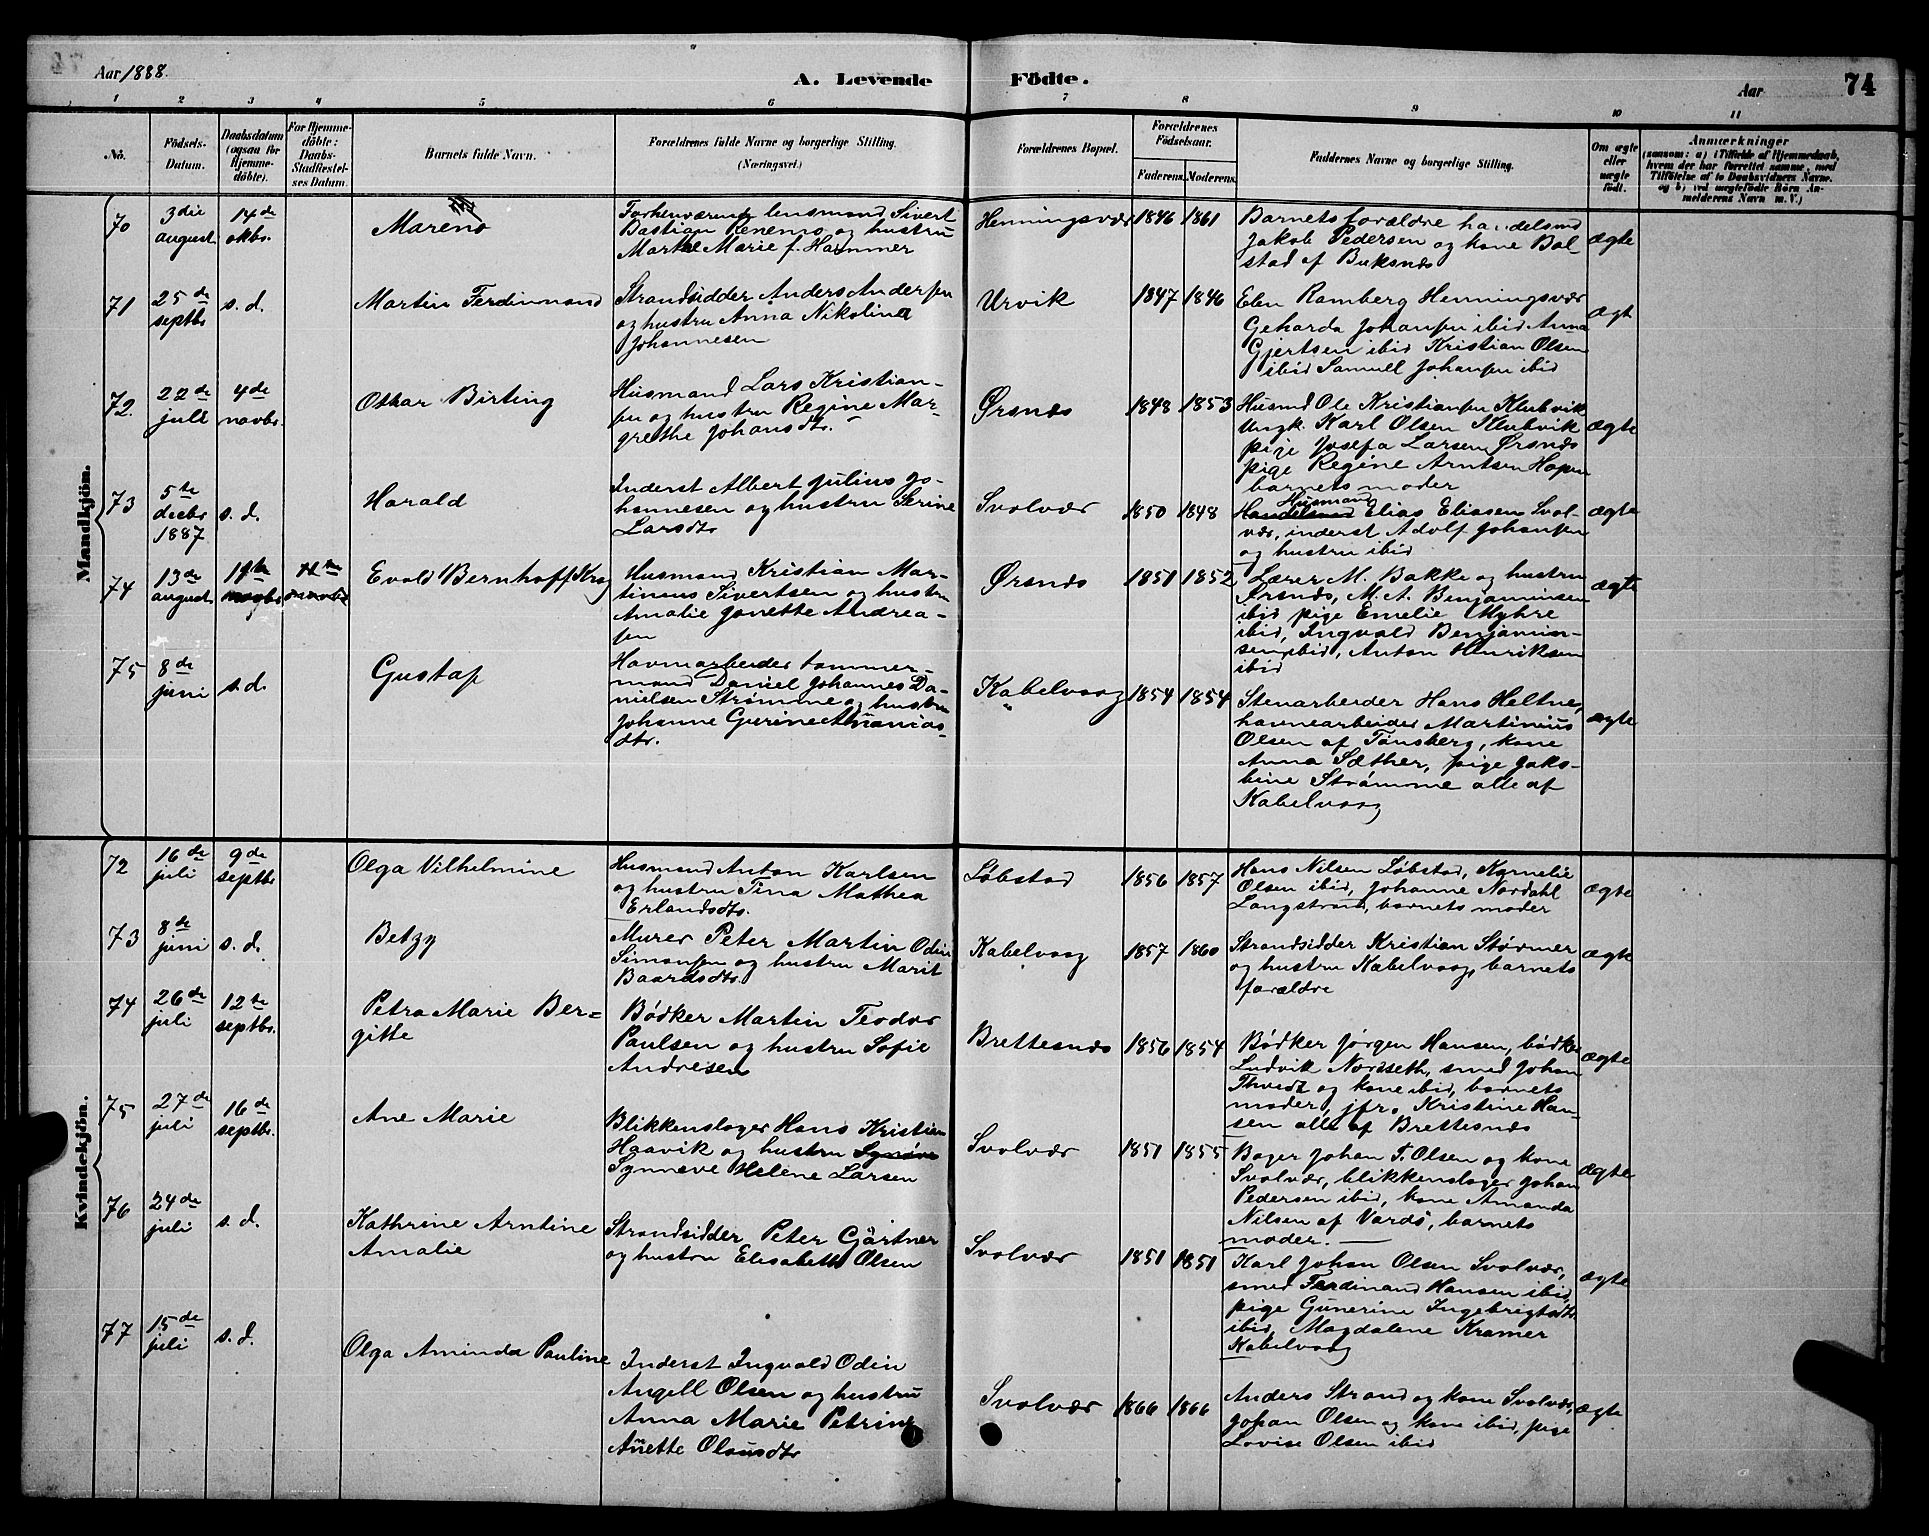 Aar 1888.
A. Levende Födte.
Aar
74
1 2 3 4 5 6 7 8 9 10 11
No.
Födsels-
Datum.
Daabsdatum
(ogsaa for
Hjemme-
döbte).
For Hjemme-
döbte:
Daabs-
Stadfæstel-
ses Datum.
Barnets fulde Navn.
Forældrenes fulde Navne og borgerlige Stilling.
(Næringsvei.)
Forældrenes Bopæl.
Forældrenes
Födselsaar.
Faderens. Moderens.
Faddernes Navne og borgerlige Stilling.
Om ægte
eller
uægte
födt.
Anmærkninger
(saasom: a) i Tilfælde af Hjemmedaab,
hvem der har forrettet samme, med
Tilföielse af to Daabsvidners Navne.
og b) ved uægtefödte Börn An-
melderens Navn m. V.)
Mandkjön.
70
3die
august
14de
oktbr.
Mareno
Forhenværende lensmand Sivert
Bastian Renemo og hustru
Martha Marie f. Hammer
Henningsvær
1846 1861
Barnets forældre handelsmd
Jakob Pedersen og kone Bal-
stad af Buksnæs
ægte
71
25de
septbr
s. d.
Martin Ferdinand
Strandsidder Anders Andersen
og hustru Anna Nikolina
Johannesen
Urvik
1847 1846
Elen Ramberg Henningsvær
Geharda Johansen ibid Anna
Gjertsen ibid Kristian Olsen
ibid Samuel Johansen ibid
ægt
72.
22de
juli
4de
novbr.
Othar Birting
Husmand Lars Kristian-
sen og hustru Regine Mar-
grethe Johansdtr.
Ørsnæs
1848 1853
Husmd Ole Kristiansen Klubvik
Ungk. Karl Olsen Klubvik
pige Josefa Larsen Ørsnæs
pige Regine Arntsen Hopen
barnets moder
ægte
73
5te
decbr
1887
s. d.
Harald
Inderst Albert Julius Jo-
hannesen og hustru Serine
Larsdtr
Svolvær
1850 1848
Husmand
Handelsmd Elias Eliassen Svol-
vær, inderst Adolf Johansen
og hustru ibid
ægte
74
13de
august
11te
novbr
11te
novbr
Evald Bernhoff Krog
Husmand Kristian Mar-
tinius Sivertsen og hustru
Amalie Janette Andrea-
sen
Ørsnæs
1851 1852
Lærer M. Bakke og hustru
Ørsnæs, M. A. Benjaminsen
ibid pige Emelie Myhre
ibid, Ingvald Benjamin-
sen ibid, Anton Henriksen
ibid
ægte
75
8de
juni
s. d.
Gustaf
Havnarbeider tømmer-
mand Daniel Johannes Da-
nielsen Strømme og hustru
Johanne Gurine Ananias-
dtr.
Kabelvaag
1854 1854
Stenarbeider Hans Heltne,
havnearbeider Martinius
Olsen af Tønsberg, kone
Anna Sæther, pige Jako-
bine Strømme alle af
Kabelvaag
ægte
Kvindekjön.
72
16de
juli
9de
septbr
Olga Vilhelmine
Husmand Anton Karlsen
og hustru Tina Mathea
Erlandsdtr.
Løbstad
1856 1857
Hans Nilsen Løbstad, Kornelie
Olsen ibid, Johanne Nordahl
Langstrand, barnets moder
ægte
73
8de
juni
s. d.
Betzy
Murer Peter Martin Odin
Simonsen og hustru Marit
Baardsdtr.
Kabelvaag
1857 1860
Strandsidder Kristian Størmer
og hustru Kabelvaag, barnets
forældre
ægte
74
26de
juli
12te
septbr.
Petra Marie Ber-
gitte
Bødker Martin Teodor
Paulsen og hustru Sofie
Andresen
Brettesnæs
1856 1854
Bødker Jørgen Hansen, bødker
Ludvik Norseth, smed Johan
Thvedt og kone ibid, barnets
moder, jfr. Kristine Han-
sen alle af Brettesnæs
ægte
75
27de
juli
16de
septbr.
Ane Marie
Blikkenslager Hans Kristian
Haavik og hustru Synøve
Synneve Helene Larsen
Svolvær
1851 1855
Bager Johan T. Olsen og kone
Svolvær, blikkenslager Johan
Pedersen ibid, kone Amanda
Nilsen af Vardö, barnets
moder.
ægte
76
24de
juli
s. d.
Kathrine Arntine
Amalie
Strandsidder Peter Gärtner
og hustru Elisabeth Olsen
Svolvær
1851 1851
Karl Johan Olsen Svolvær,
smed Ferdinand Hansen ibid,
pige Gunerine Ingebrigtsdtr
ibid, Magdalene Kramer
Kabelvaag
ægte
77
15de
juli
s. d.
Olga Aminda Pauline
Inderst Ingvald Odin
Angell Olsen og hustru
Anna Marie Petrine
Anette Olausdtr
Svolvær
1866 1866
Anders Strand og kone Svolvær,
Johan Olsen og kone ibid, pige
Lovise Olsen ibid
ægte